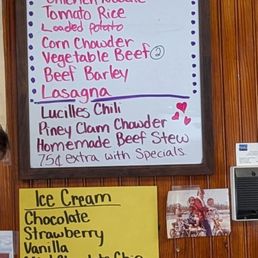 Chicken Noodle
Tomato Rice
Loaded Potato
Corn Chowder
Vegetable Beef ②
Beef Barley
Lasagna
Lucilles Chili
Piney Clam Chowder
Homemade Beef Stew
75¢ extra with Specials
Ice Cream
Chocolate
Strawberry
Vanilla
Mint Chocolate Chip